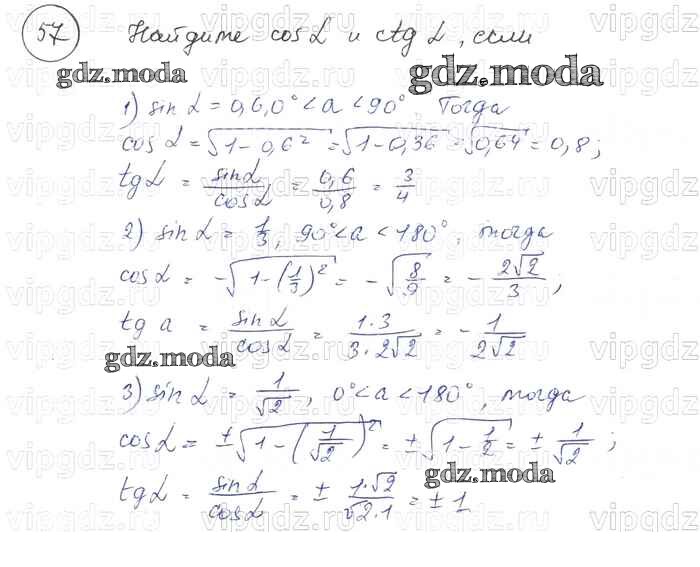 57 Найдите cos α и ctg α, если
gdz.moda gdz.moda
1) sin α = 0,6, 0° < a < 90° Тогда
cos α = √(1-0,6²) = √(1-0,36) = √0,64 = 0,8;
tg α = sin α / cos α = 0,6/0,8 = 3/4
2) sin α = 1/3, 90° < a < 180°, тогда
cos α = -√(1-(1/3)²) = -√(8/9) = -2√2/3;
tg a = sin α / cos α = 1·3/(3·2√2) = -1/(2√2)
gdz.moda
3) sin α = 1/√2, 0° < a < 180°, тогда
cos α = ±√(1-(1/√2)²) = ±√(1-1/2) = ±1/√2;
gdz.moda
tg α = sin α / cos α = ± 1·√2/(√2·1) = ±1